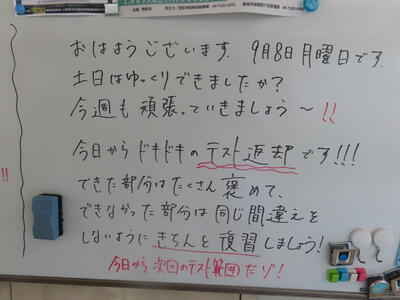 おはようございます。9月8日月曜日です。
土日はゆっくりできましたか?
今週も頑張っていきましょう〜!!
今日からドキドキのテスト返却です!!!
できた部分はたくさん褒めて、
できなかった部分は同じ間違えを
しないようにきちんと復習しましょう!
今日から次回のテスト範囲だゾ!
!!